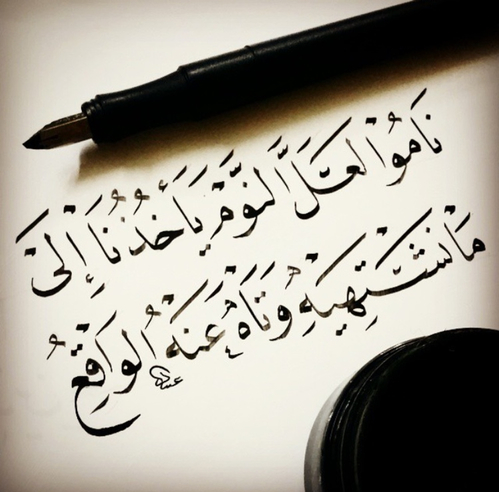 نَامُوا لَعَلَّ النَّوْمَ يَأْخُذُنَا إِلَىٰ
مَا نَشْتَهِيهِ وَتَاهَ عَنْهُ الْوَاقِعُ